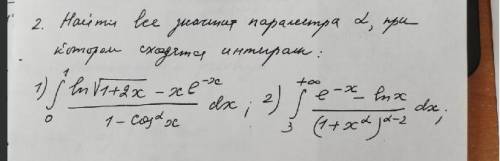 2. Найти все значения параметра α, при
котором сходятся интегралы:
1) ∫₀¹ (ln√(1+2x) − xe^(−x)) / (1 − cos^α x) dx; 2) ∫₃^(+∞) (e^(−x) − ln x) / (1+x^α)^(α−2) dx;